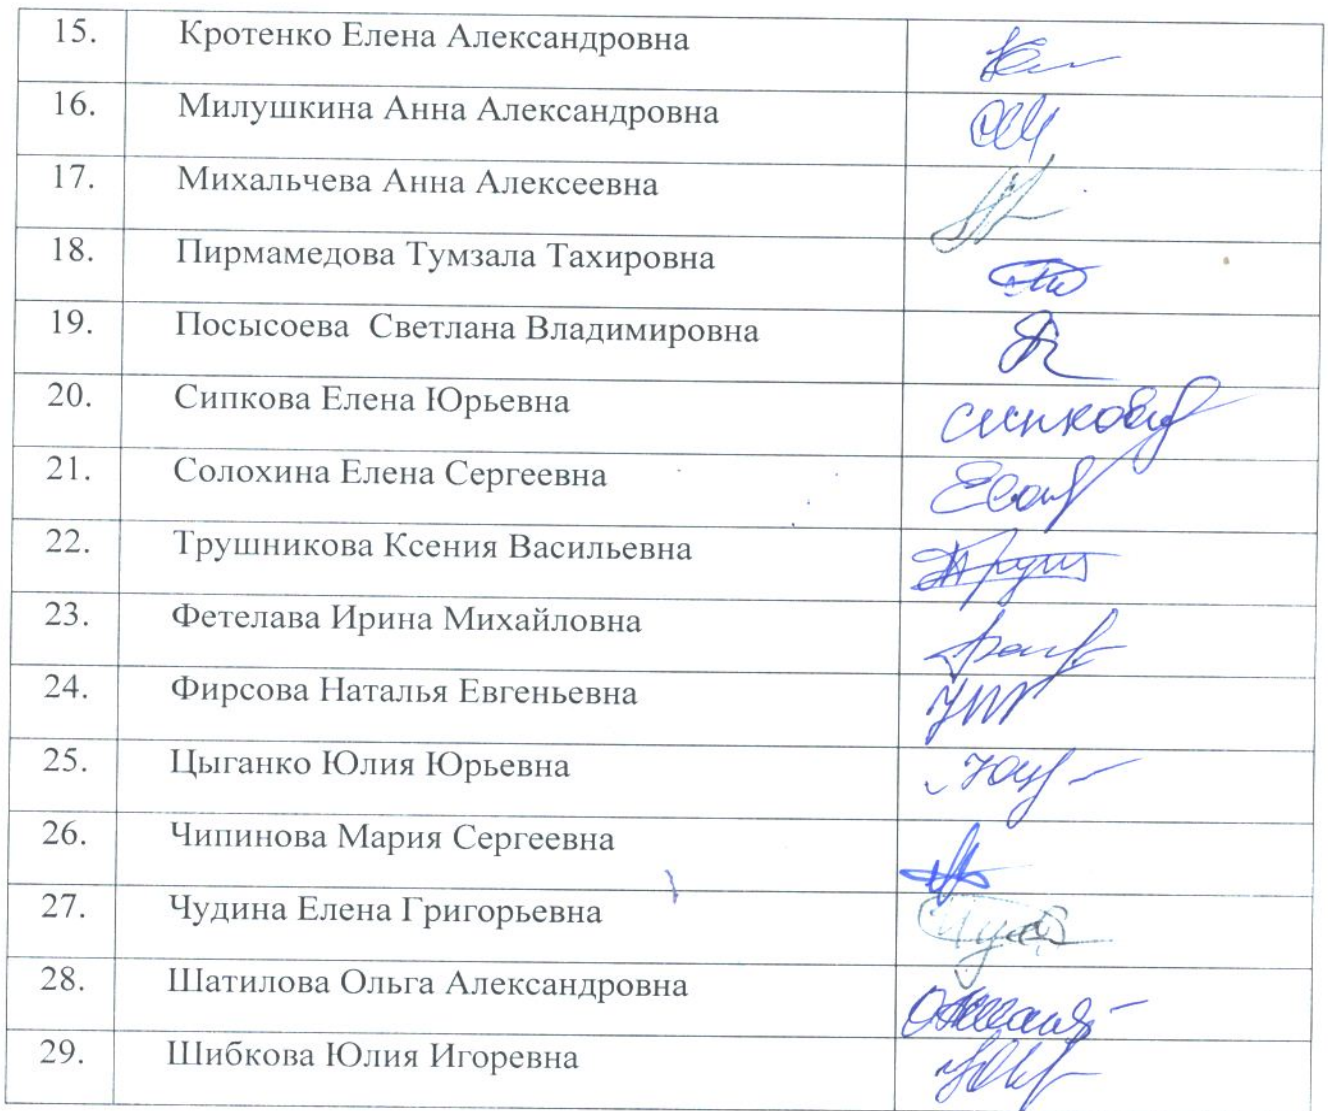 15. Кротенко Елена Александровна
16. Милушкина Анна Александровна
17. Михальчева Анна Алексеевна
18. Пирмамедова Тумзала Тахировна
19. Посысоева Светлана Владимировна
20. Сипкова Елена Юрьевна сипкова
21. Солохина Елена Сергеевна
22. Трушникова Ксения Васильевна
23. Фетелава Ирина Михайловна
24. Фирсова Наталья Евгеньевна
25. Цыганко Юлия Юрьевна
26. Чипинова Мария Сергеевна
27. Чудина Елена Григорьевна
28. Шатилова Ольга Александровна
29. Шибкова Юлия Игоревна